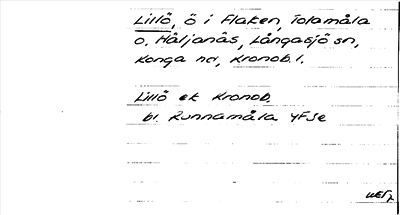 Lillö, ö i Flaken, Tolamåla
o. Håljanäs, Långasjö sn,
Konga hd, Kronob. l.
Lillö ek Kronob.
bl. Runnamåla YFSe